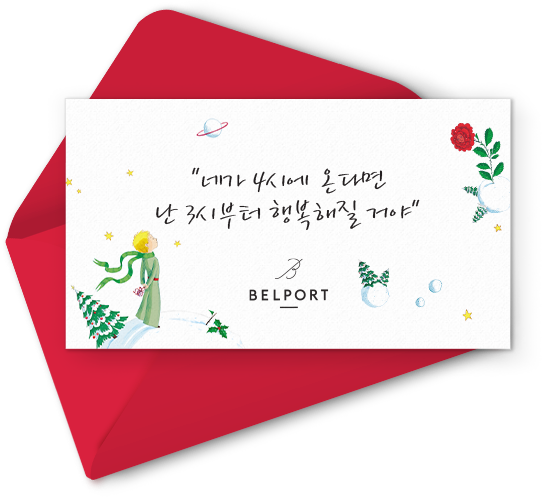 "네가 4시에 온다면
난 3시부터 행복해질 거야"
B
BELPORT